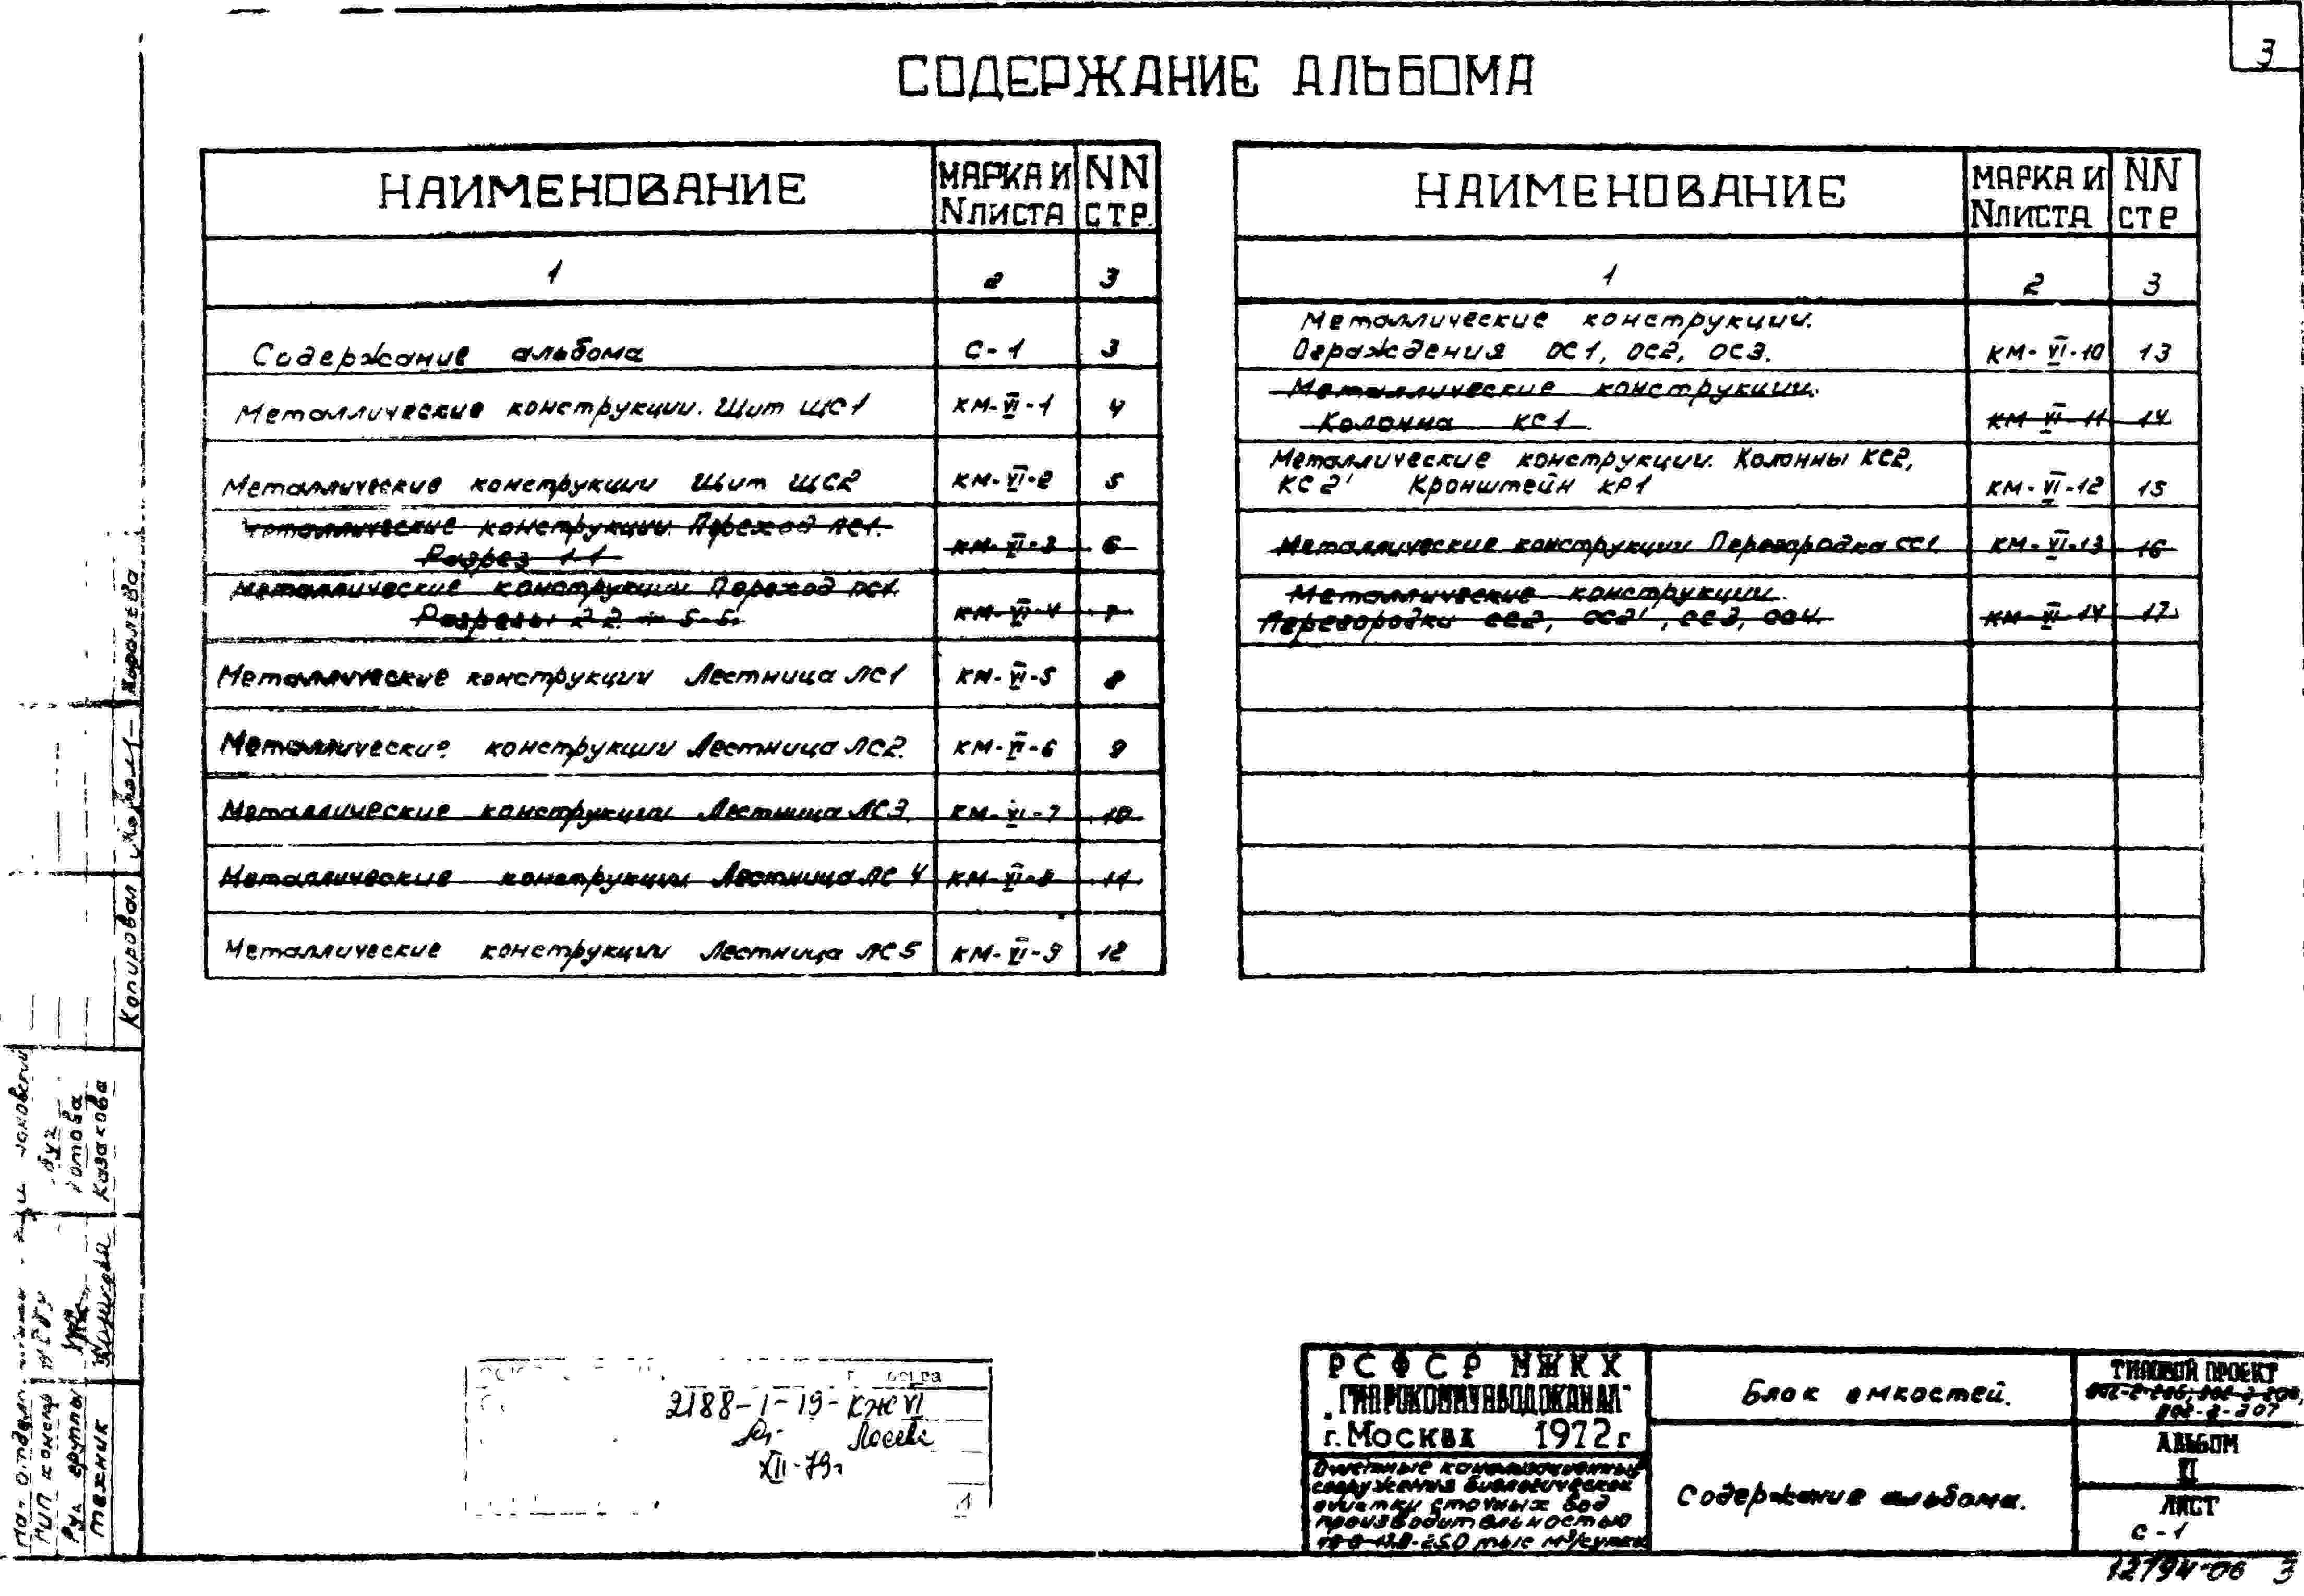 3
СОДЕРЖАНИЕ АЛЬБОМА
НАИМЕНОВАНИЕ МАРКА И NЛИСТА NN СТР.
1 2 3
Содержание альбома С-1 3
Металлические конструкции. Щит ЩС1 КМ-VI-1 4
Металлические конструкции Щит ЩС2 КМ-VI-2 5
Металлические конструкции. Переход ПС1.
Разрез 1-1 КМ-VI-3 6
Металлические конструкции Переход ПС1.
Разрезы 2-2 ÷ 5-5 КМ-VI-4 7
Металлические конструкции Лестница ЛС1 КМ-VI-5 8
Металлические конструкции Лестница ЛС2. КМ-VI-6 9
Металлические конструкции Лестница ЛС3. КМ-VI-7 10
Металлические конструкции Лестница ЛС 4 КМ-VI-8 11
Металлические конструкции Лестница ЛС5 КМ-VI-9 12
НАИМЕНОВАНИЕ МАРКА И NЛИСТА NN СТР
1 2 3
Металлические конструкции.
Ограждения ОС1, ОС2, ОС3. КМ-VI-10 13
Металлические конструкции.
Колонна КС1 КМ-VI-11 14
Металлические конструкции. Колонны КС2,
КС2' Кронштейн КР1 КМ-VI-12 15
Металлические конструкции Перегородка СС1 КМ-VI-13 16
Металлические конструкции.
Перегородки СС2, СС2', СС3, СС4. КМ-VI-14 17
Копировал Королева
Казакова
Рук группы
техник
2188-I-19-КЖ VI
Лосева
XII-79г
1
РСФСР МЖКХ
"ГИПРОКОММУНВОДОКАНАЛ"
г. Москва 1972 г
Очистные канализационные
сооружения биологической
очистки сточных вод
производительностью
25.0 тыс м³/сутки
Блок емкостей.
Содержание альбома.
ТИПОВОЙ ПРОЕКТ
902-2-207
АЛЬБОМ
VI
ЛИСТ
С-1
12794-06 3